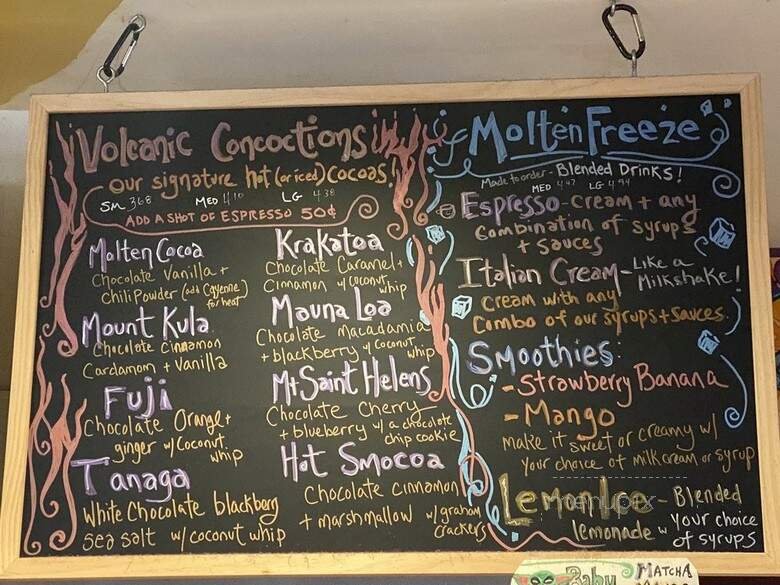 Volcanic Concoctions
our signature hot (or iced) cocoas!
SM 368 MED 410 LG 438
ADD A SHOT OF ESPRESSO 50¢
Molten Cocoa
Chocolate Vanilla +
Chili Powder (add Cayenne)
for heat
Mount Kula
Chocolate Cinnamon
Cardamon + Vanilla
Fuji
Chocolate Orange +
ginger w/ Coconut
whip
Tanaga
White Chocolate blackberry
Sea Salt w/ coconut whip
Krakatoa
Chocolate Caramel +
Cinnamon w/ coconut
whip
Mauna Loa
Chocolate macadamia
+ blackberry w/ Coconut
whip
Mt Saint Helens
Chocolate Cherry
+ blueberry w/ a chocolate
chip cookie
Hot Smocoa
Chocolate Cinnamon
+ marshmallow w/ graham
crackers
Molten Freeze
Made to order - Blended Drinks!
MED 447 LG 494
Espresso - cream + any
Combination of syrups
+ sauces
Italian Cream - Like a
Milkshake!
Cream with any
Combo of our syrups + sauces.
Smoothies:
- Strawberry Banana
- Mango
make it sweet or creamy w/
your choice of milk cream or syrup
Lemon Ice - Blended
lemonade w your choice
of syrups
menupix
Baby
MATCHA